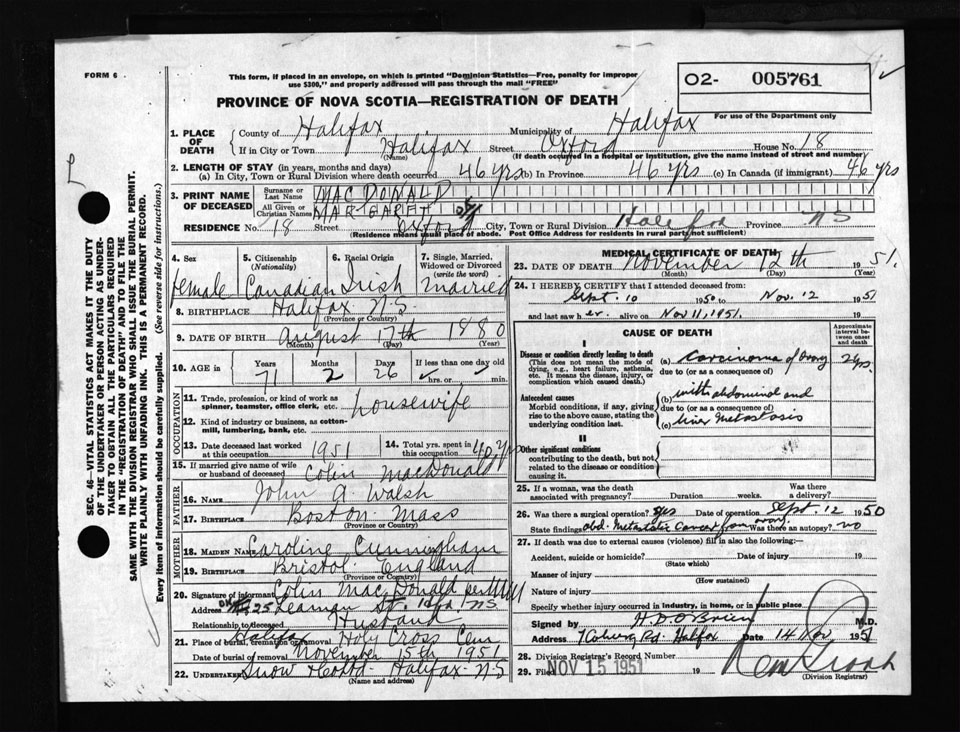 FORM 6
This form, if placed in an envelope, on which is printed "Dominion Statistics—Free, penalty for improper
use $300," and properly addressed will pass through the mail "FREE"
02- 005761
PROVINCE OF NOVA SCOTIA—REGISTRATION OF DEATH
For use of the Department only
1. PLACE OF DEATH County of Halifax Municipality of Halifax
If in City or Town Halifax Street Oxford House No. 18
(Name) (If death occurred in a hospital or institution, give the name instead of street and number)
2. LENGTH OF STAY (in years, months and days)
(a) In City, Town or Rural Division where death occurred 46 yrs (b) In Province 46 yrs (c) In Canada (if immigrant) 46 yrs
3. PRINT NAME OF DECEASED Surname or Last Name MACDONALD
All Given or Christian Names MARGARET
RESIDENCE No. 18 Street Oxford City, Town or Rural Division Halifax Province NS
(Residence means usual place of abode. Post Office Address for residents in rural parts not sufficient)
4. Sex female
5. Citizenship (Nationality) Canadian
6. Racial Origin Irish
7. Single, Married, Widowed or Divorced (write the word) married
8. BIRTHPLACE Halifax N.S.
(Province or Country)
9. DATE OF BIRTH August 17th 1880
(Month) (Day) (Year)
10. AGE in Years 71 Months 2 Days 26 If less than one day old hrs. or min.
OCCUPATION
11. Trade, profession, or kind of work as spinner, teamster, office clerk, etc. housewife
12. Kind of industry or business, as cotton-mill, lumbering, bank, etc.
13. Date deceased last worked at this occupation 1951
14. Total yrs. spent in this occupation 40 yrs
15. If married give name of wife or husband of deceased Colin MacDonald
FATHER
16. Name John A. Walsh
17. Birthplace Boston Mass
(Province or Country)
MOTHER
18. Maiden Name Caroline Cunningham
19. Birthplace Bristol England
(Province or Country)
20. Signature of informant Colin MacDonald
Address 25 Leaman St. Hfx NS
Relationship to deceased Husband
21. Place of burial, cremation or removal Halifax Holy Cross Cem
Date of burial or removal November 15th 1951
22. Undertaker Snow Halifax N-S
(Name and address)
MEDICAL CERTIFICATE OF DEATH
23. DATE OF DEATH November 12th 1951.
(Month) (Day) (Year)
24. I HEREBY CERTIFY that I attended deceased from:
Sept. 10 1950 to Nov. 12 1951
and last saw her alive on Nov 11, 1951.
CAUSE OF DEATH
Approximate interval between onset and death
I
Disease or condition directly leading to death
(This does not mean the mode of dying, e.g., heart failure, asthenia, etc. It means the disease, injury, or complication which caused death.)
(a) Carcinoma of Ovary 2 yrs.
due to (or as a consequence of)
Antecedent causes
Morbid conditions, if any, giving rise to the above cause, stating the underlying condition last.
(b) with abdominal and
due to (or as a consequence of)
(c) liver metastasis
II
Other significant conditions
contributing to the death, but not related to the disease or condition causing it
25. If a woman, was the death associated with pregnancy? Duration weeks. Was there a delivery?
26. Was there a surgical operation? yes Date of operation Sept. 12 1950
State findings abd. Metastatic Cancer from ovary. Was there an autopsy? no
27. If death was due to external causes (violence) fill in also the following:—
Accident, suicide or homicide? Date of injury 19
(State which)
Manner of injury
(How sustained)
Nature of injury
Specify whether injury occurred in industry, in home, or in public place
Signed by H.D. O'Brien M.D.
Address 7 Coburg Rd. Halifax Date 14 Nov 1951
28. Division Registrar's Record Number
29. Filed NOV 15 1951 19
(Division Registrar)
SEC. 46—VITAL STATISTICS ACT MAKES IT THE DUTY
OF THE UNDERTAKER OR PERSON ACTING AS UNDER-
TAKER TO OBTAIN ALL THE PARTICULARS REQUIRED
IN THE "REGISTRATION OF DEATH" AND TO FILE THE
SAME WITH THE DIVISION REGISTRAR WHO SHALL ISSUE THE BURIAL PERMIT.
WRITE PLAINLY WITH UNFADING INK. THIS IS A PERMANENT RECORD.
Every item of information should be carefully supplied. (See reverse side for instructions.)